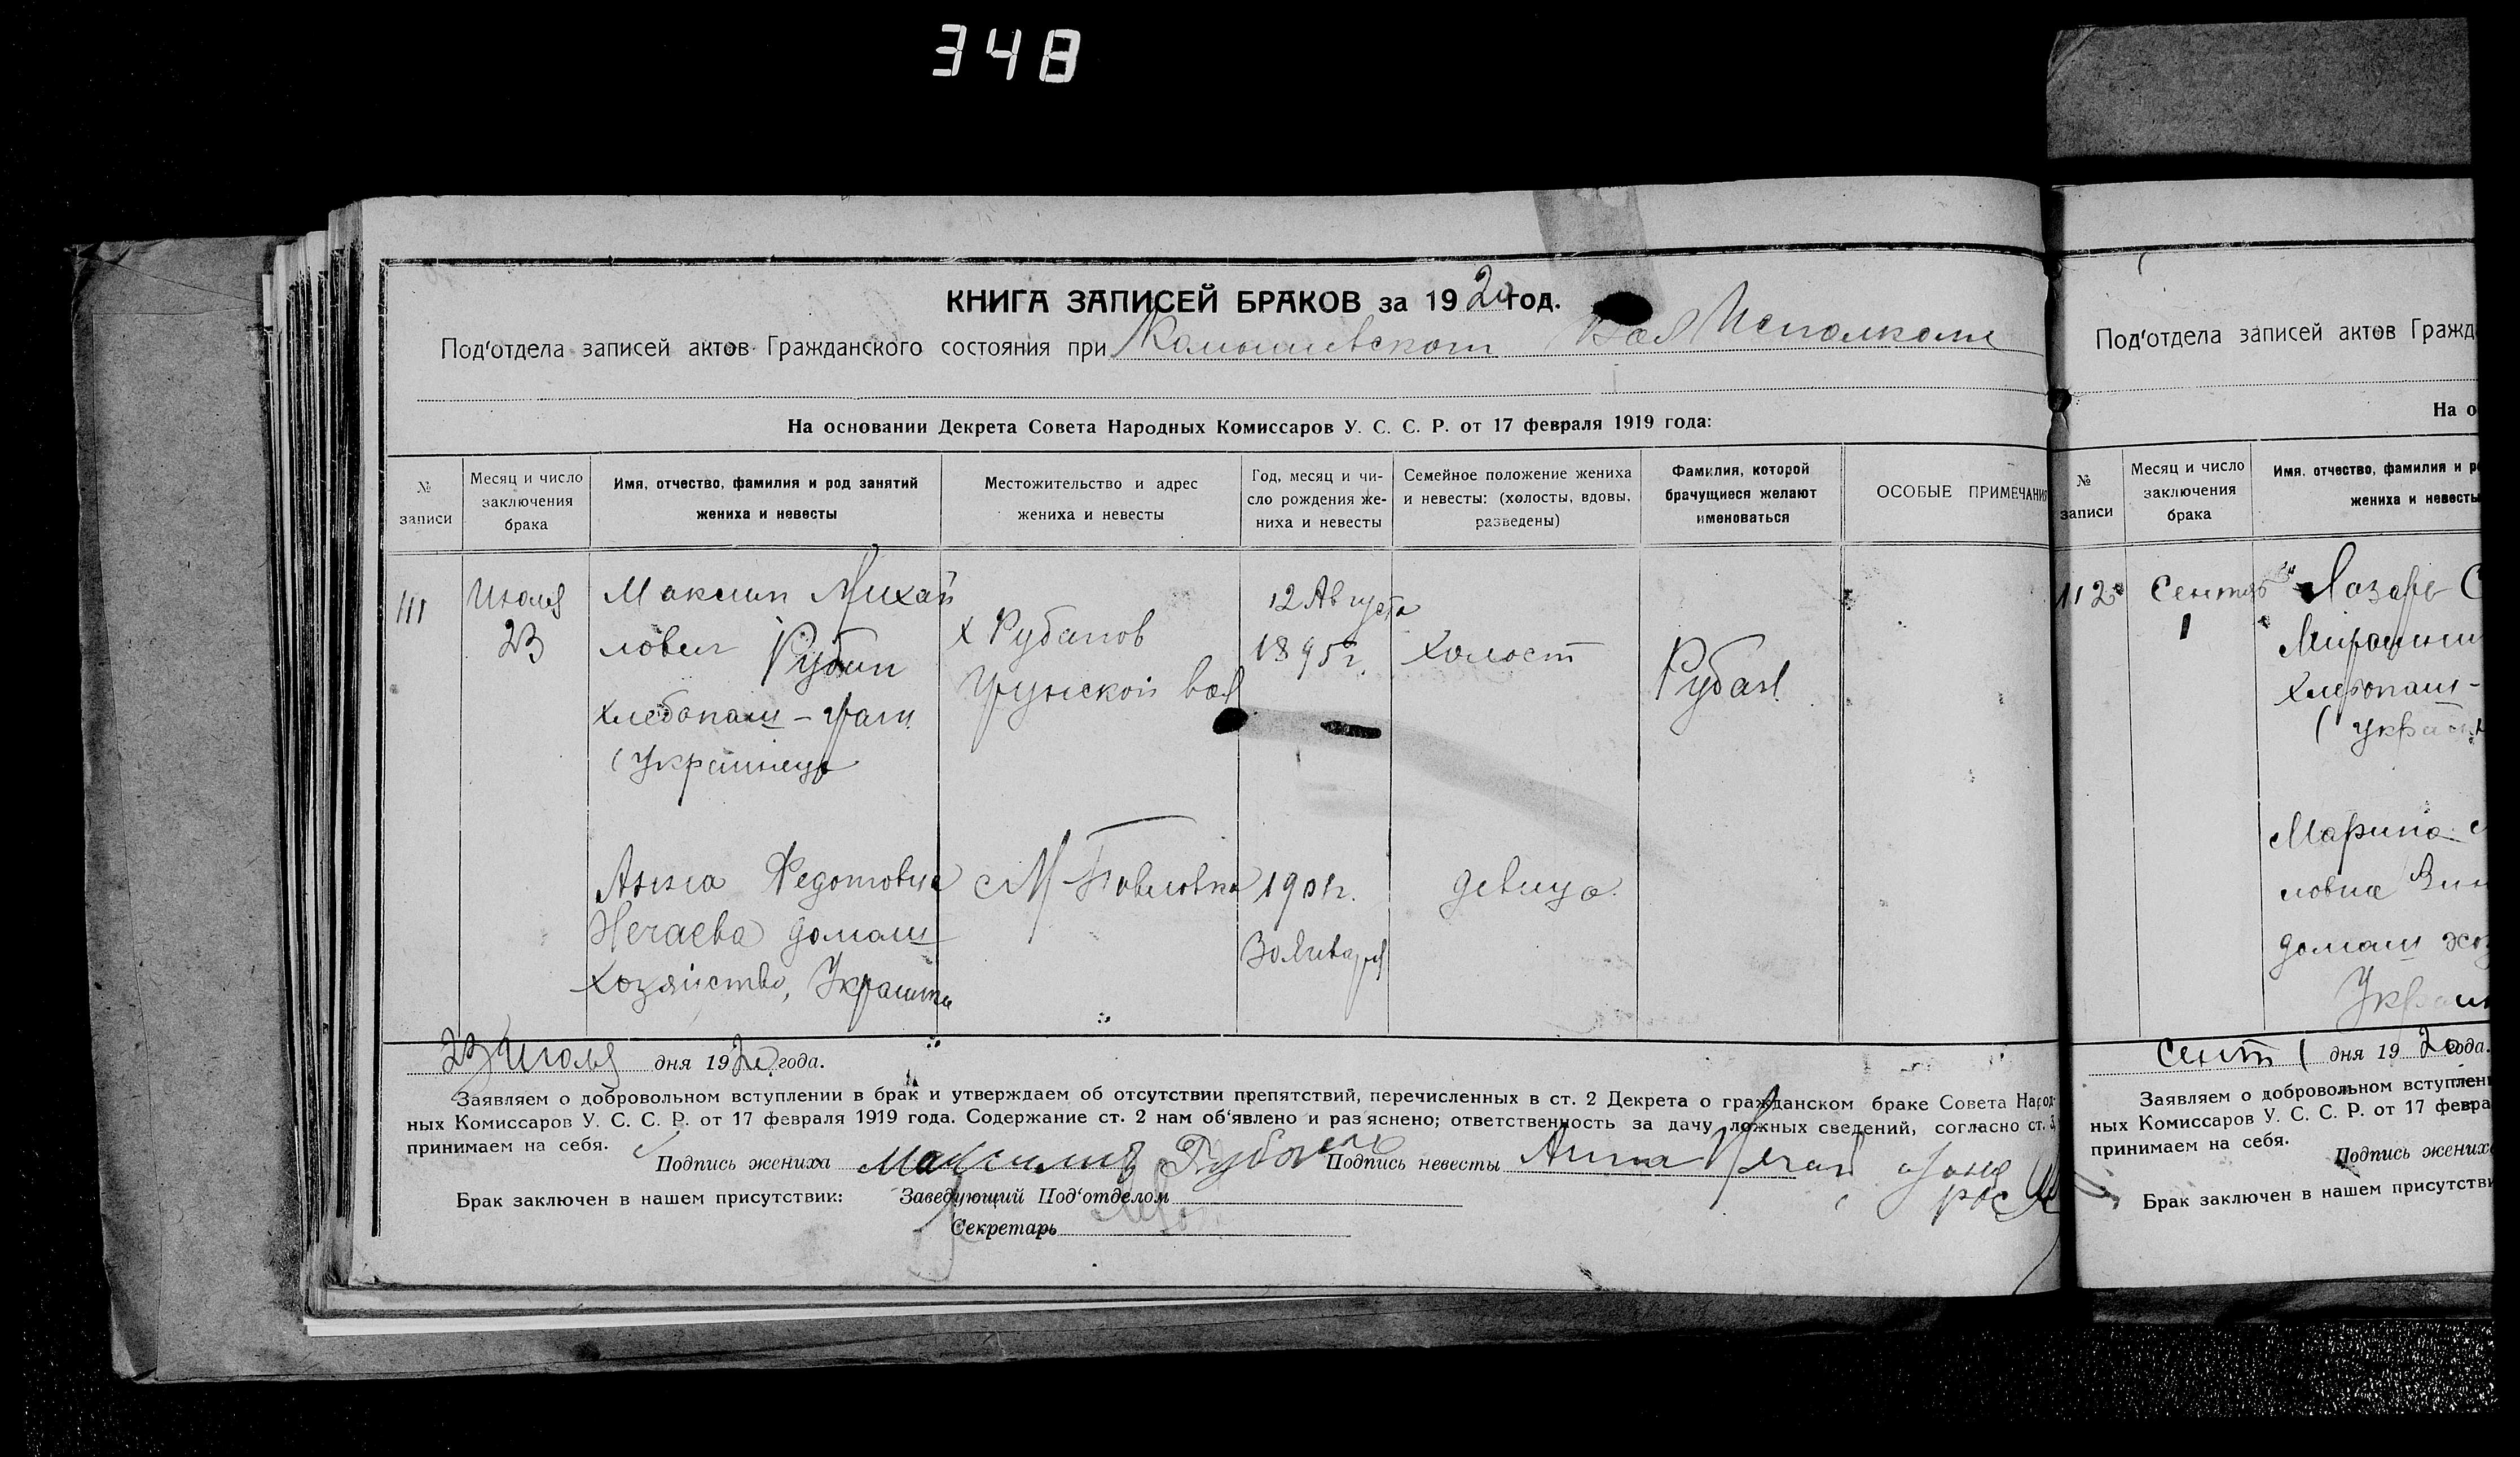 348
КНИГА ЗАПИСЕЙ БРАКОВ за 1920 год.
Под'отдела записей актов Гражданского состояния при Камышевском Вол Исполкоме
На основании Декрета Совета Народных Комиссаров У. С. С. Р. от 17 февраля 1919 года:
№ записи
Месяц и число заключения брака
Имя, отчество, фамилия и род занятий жениха и невесты
Местожительство и адрес жениха и невесты
Год, месяц и чи-
сло рождения же-
ниха и невесты
Семейное положение жениха
и невесты: (холосты, вдовы,
разведены)
Фамилия, которой
брачущиеся желают
именоваться
ОСОБЫЕ ПРИМЕЧАНИ
111
Июля
23
Максим Михай
лович Рубан
хлебопаш
(Украинец
х Рубанов
вол
12 Августа
1895 г.
холост
Рубан
Анна Федотовна
Нечаева домаш
хозяйство, Украинка
с М Павловка
1901 г.
30 Января
девица
23 Июля дня 1920 года.
Заявляем о добровольном вступлении в брак и утверждаем об отсутствии препятствий, перечисленных в ст. 2 Декрета о гражданском браке Совета Народ-
ных Комиссаров У. С. С. Р. от 17 февраля 1919 года. Содержание ст. 2 нам об'явлено и раз яснено; ответственность за дачу ложных сведений, согласно ст. 3,
принимаем на себя.
Подпись жениха Максим Рубан Подпись невесты Анна
Брак заключен в нашем присутствии: Заведующий Под'отделом
Секретарь
Под'отдела записей актов Гражд
На о
№ записи
Месяц и число
заключения
брака
Имя, отчество, фамилия и р
жениха и невесты
112
Сентяб
1
Лазарь С
хлебопаш-
(Украин
Марина
ловна
домаш хоз
Украин
Сент 1 дня 1920 года.
Заявляем о добровольном вступлен
ных Комиссаров У. С. С. Р. от 17 февра
принимаем на себя.
Подпись жениха
Брак заключен в нашем присутстви